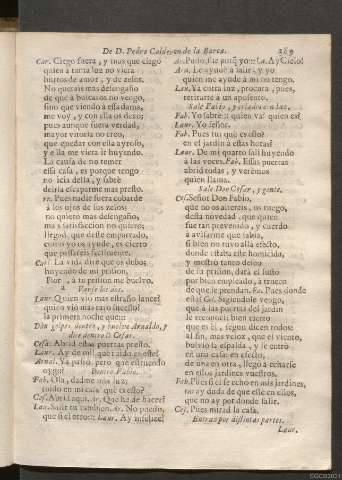 De D. Pedro Calderon de la Barca. 289
Car. Ciego fuera, y mas que ciego
quien à tanta luz no viera
hurtos de amor, y de zelos.
No querais mas desengaño
de que à buscaros no vengo,
sino que viendo à esta dama,
me voy, y con ella os dexo;
pues aunque fuera verdad,
mayor vitoria no creo,
que quedar con ella ayroso,
y ella me viera ir huyendo.
La causa de no temer
essa casa, es porque tengo
noticia della, y sabrè
della escaparme mas presto.
pues nadie fuera cobarde
à los ojos de sus zelos:
no quiero mas desengaño,
ma s satisfaccion no quiero;
llegad, que desse emparrado,
como yo os ayude, es cierto
que passareis facilmente.
Carl. La vida dirè que os debo;
huyendo de mi prision,
à tu prision me buelvo.
Vanse los dos.
Laur. Quien viò mas estraño lance?
quien viò mas raro sucesso?
la primera noche que
Dàn golpes dentro, y buelve Arnaldo, y
dize dentro D. Cesar.
Cesa. Abrid essas puertas presto.
Laur. Ay de mi! què ruido es este?
Arnal. Ya passò, pero què estruendo
oygo? Dentro Fabio.
Fab. Ola, dadme una luz;
ruido en mi casa? què es esto?
Ces. Abrid aqui. Ar. Què ha de hacer?
Lau. Salir tu tambien. Ar. No puedo,
que si el otro Laur. Ay infelice!
Ar. Pudo, fue porq yo Lau. Ay Cielo!
Ar. Le ayudè à salir, y yo
quien me ayude à mi no tengo.
Lau. Ya entra luz, procura, pues,
retirarte à un aposento.
Sale Fabio, y criados con luz.
Fab. Yo sabrè quien và: quien es?
Laur. Yo señor.
Fab. Pues tu! què es esto?
en el jardin à estas horas?
Laur. De mi quarto salì huyendo
à las voces. Fab. Essas puertas
abrid todas, y verèmos
quien llama.
Sale Don Cesar, y gente.
Ces. Señor Don Fabio,
que no os altereis, os ruego,
desta novedad, que quien
fue tan prevenido, y cuerdo
à avisarme que sabia,
si bien no tuvo alla efecto,
donde estaba este homicida,
y mostrò tanto deseo
de su prision, darà el susto
por bien empleado, à trueco
de que le prendan. Fa. Pues donde
està? Ces. Siguiendole vengo,
que à las puertas del jardin
le reconocì bien cierto
que es èl, segun dicen todos:
al fin, mas veloz, que el viento,
bolviò la espalda, y se entrò
en una casa; en efecto,
de una en otra, llegò à echarse
en estos jardines vuestros.
Fab. Pues si èl se echò en mis jardines,
no ay duda de que este en ellos,
que no ay por donde salir.
Ces. Pues mirad la casa.
Entran por distintas partes.
Laur.